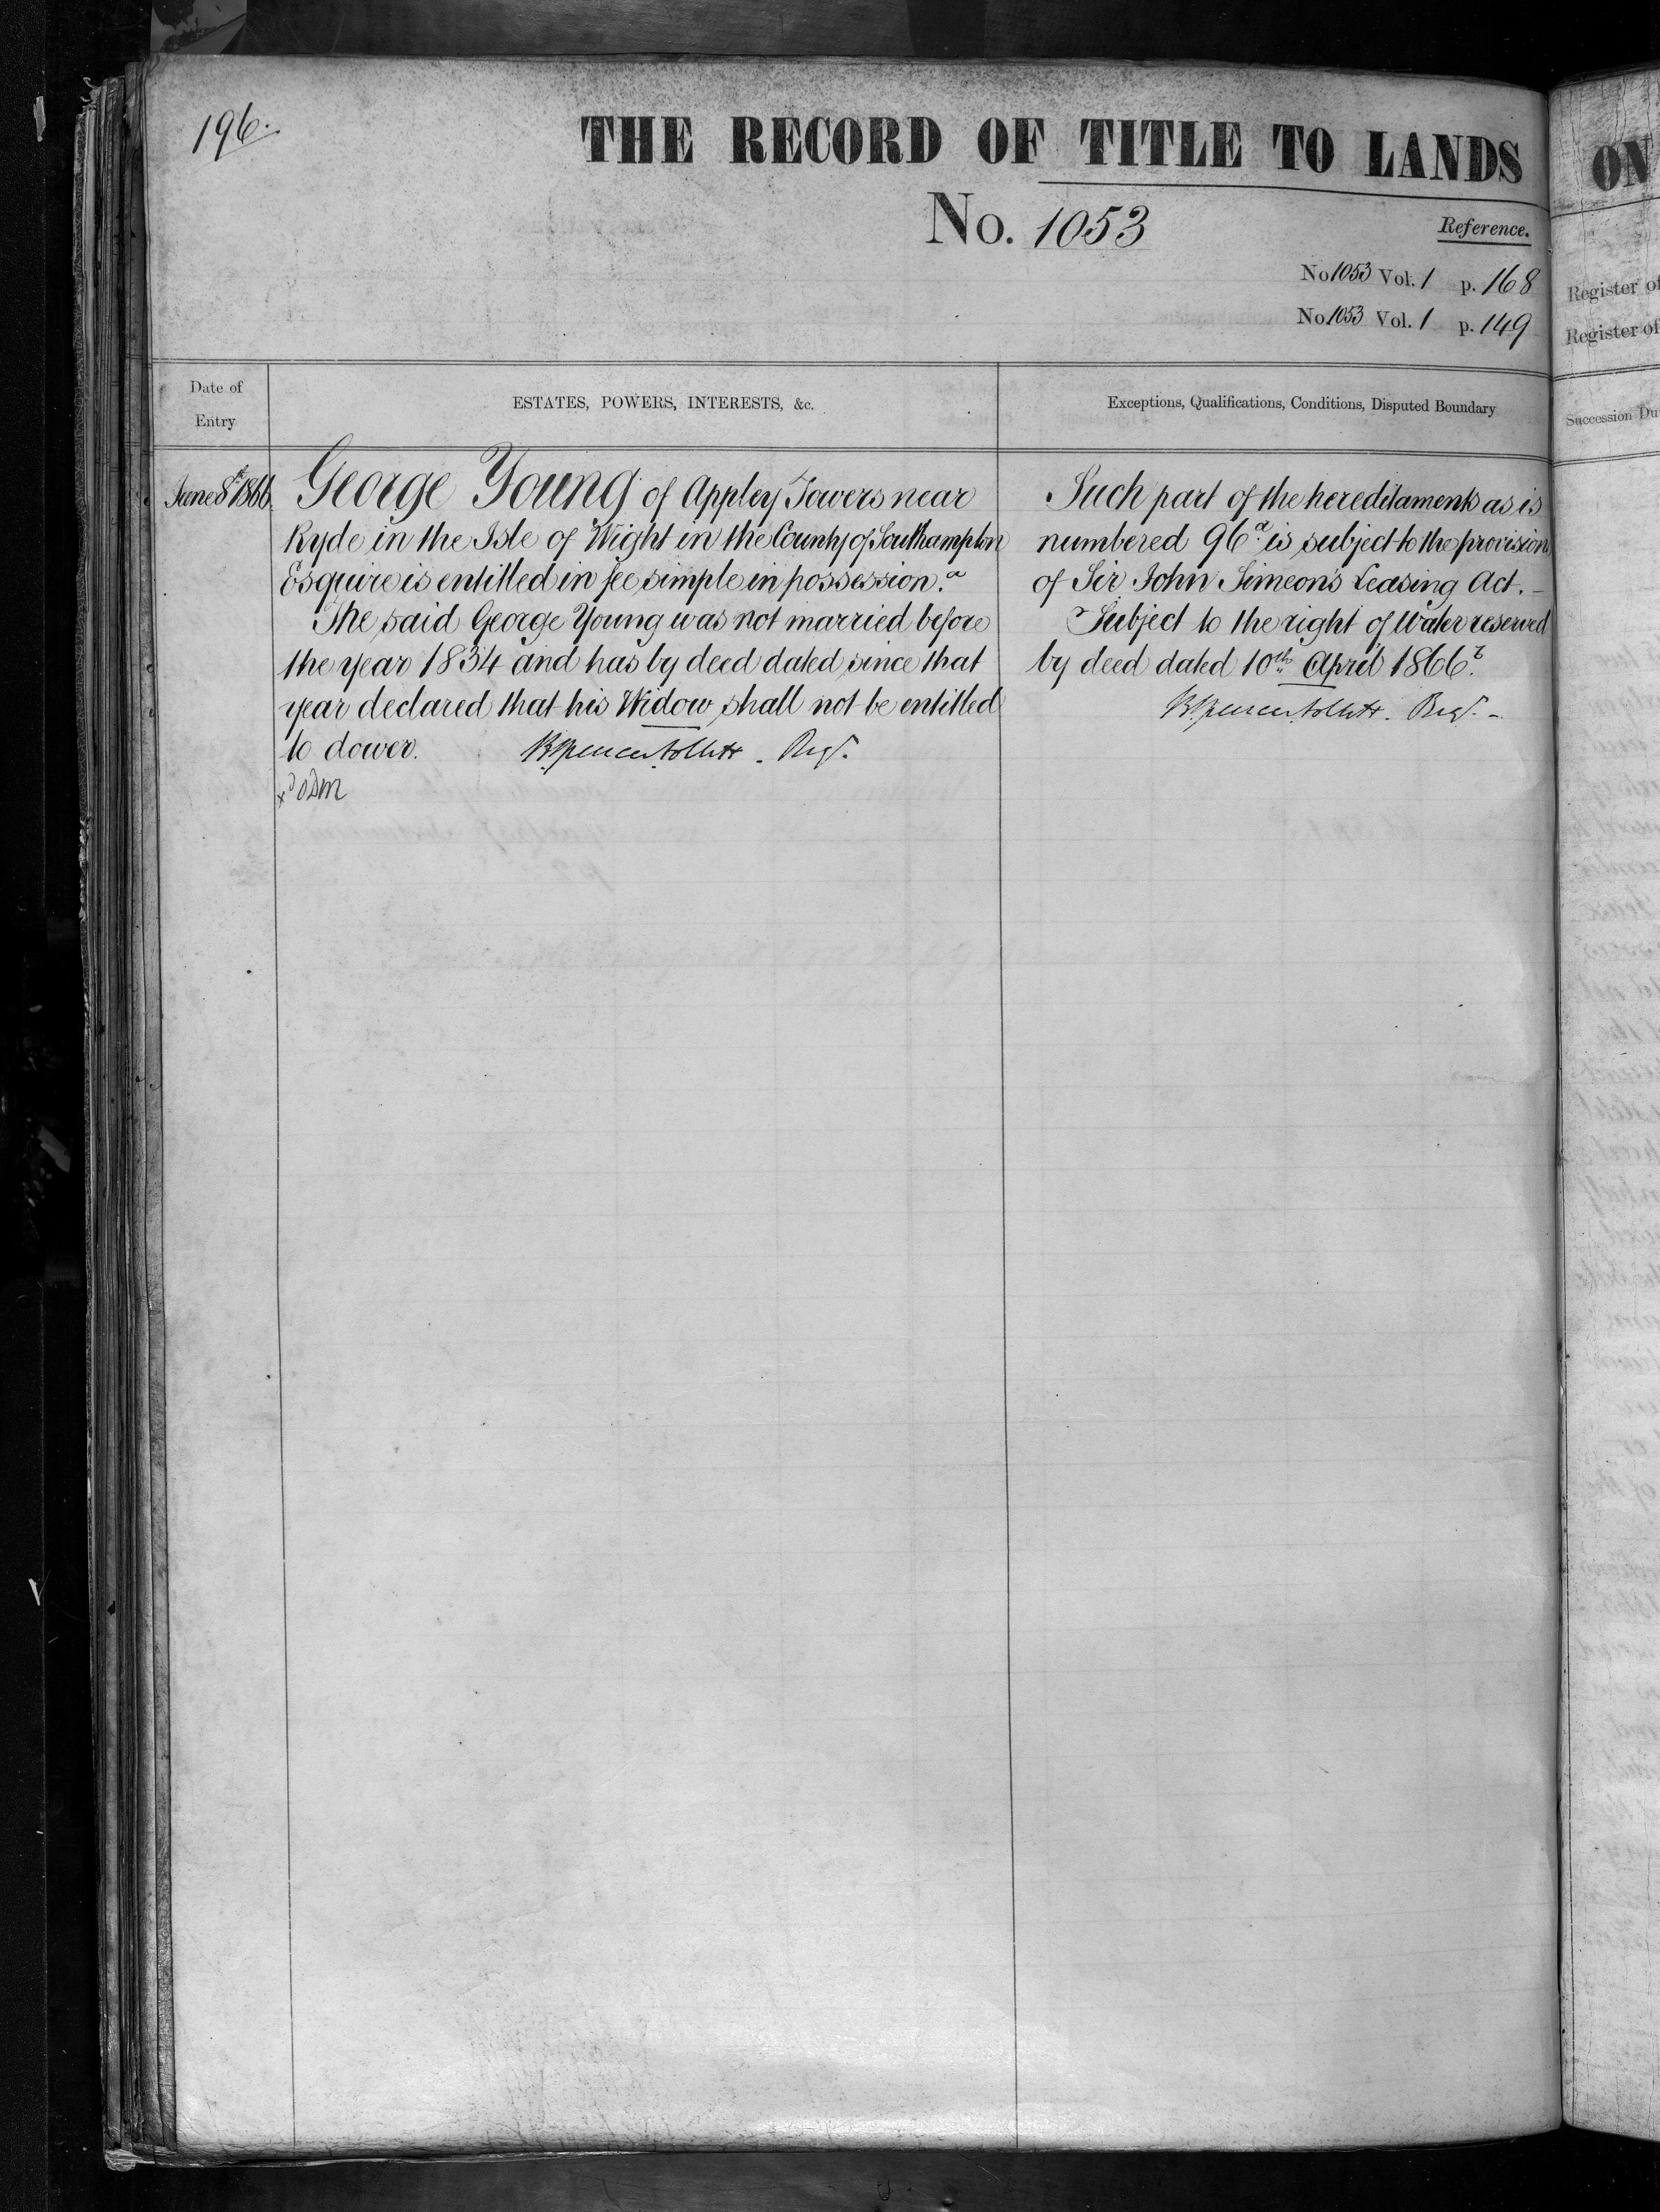 196.
THE RECORD OF TITLE TO LANDS
No. 1053
Reference.
No 1053 Vol. 1 p. 168
No 1053 Vol. 1 p. 149
Date of
Entry
ESTATES, POWERS, INTERESTS, &c.
Exceptions, Qualifications, Conditions, Disputed Boundary
June 8th 1866.
George Young of Appley Towers near
Ryde in the Isle of Wight in the County of Southampton
Esquire is entitled in fee simple in possession. a
The said George Young was not married before
the year 1834 and has by deed dated since that
year declared that his Widow shall not be entitled
to dower. Regr.
Such part of the hereditaments as is
numbered 96 a is subject to the provision
of Sir John Simeon's Leasing Act. -
Subject to the right of Water reserved
by deed dated 10th April 1866 b.
Regr. -
ON
Register of
Register of
Succession Du